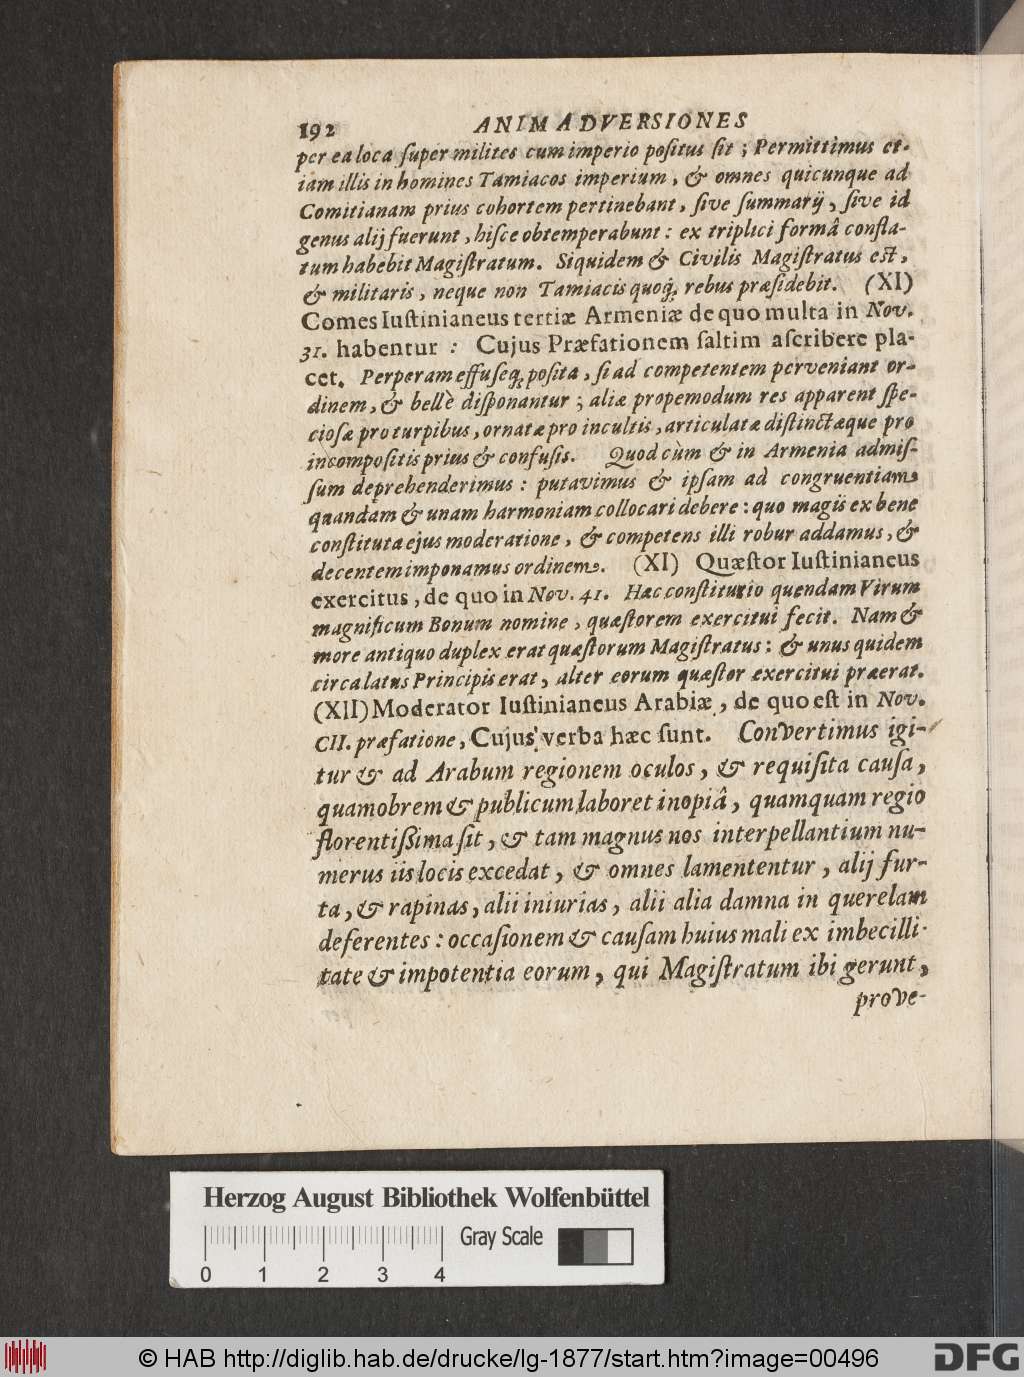 192 ANIMADVERSIONES
per ea loca ſuper milites cum imperio poſitus ſit ; Permittimus et-
iam illis in homines Tamiacos imperium, & omnes quicunque ad
Comitianam prius cohortem pertinebant, ſive ſummarij, ſive id
genus alij fuerunt, hiſce obtemperabunt : ex triplici formâ conſla-
tum habebit Magiſtratum. Siquidem & Civilis Magiſtratus eſt,
& militaris, neque non Tamiacis quoq; rebus præſidebit. (XI)
Comes Iuſtinianeus tertiæ Armeniæ de quo multa in Nov.
31. habentur : Cujus Præfationem ſaltim aſcribere pla-
cet. Perperam effuſeq; poſita, ſi ad competentem perveniant or-
dinem, & bellè diſponantur ; aliæ propemodum res apparent ſpe-
cioſæ pro turpibus, ornatæ pro incultis, articulatæ diſtinctæque pro
incompoſitis prius & confuſis. Quod cùm & in Armenia admiſ-
ſum deprehenderimus : putavimus & ipſam ad congruentiam
quandam & unam harmoniam collocari debere : quo magis ex bene
conſtituta ejus moderatione, & competens illi robur addamus, &
decentem imponamus ordinem. (XI) Quæſtor Iuſtinianeus
exercitus, de quo in Nov. 41. Hæc conſtitutio quendam Virum
magnificum Bonum nomine, quæſtorem exercitui fecit. Nam &
more antiquo duplex erat quæſtorum Magiſtratus : & unus quidem
circa latus Principis erat, alter eorum quæſtor exercitui præerat.
(XII) Moderator Iuſtinianeus Arabiæ, de quo eſt in Nov.
CII. præfatione, Cujus verba hæc ſunt. Convertimus igi-
tur & ad Arabum regionem oculos, & requiſita cauſa,
quamobrem & publicum laboret inopiâ, quamquam regio
florentiſſima ſit, & tam magnus nos interpellantium nu-
merus iis locis excedat, & omnes lamententur, alij fur-
ta, & rapinas, alii iniurias, alii alia damna in querelam
deferentes : occaſionem & cauſam huius mali ex imbecilli-
tate & impotentia eorum, qui Magiſtratum ibi gerunt,
prove-
Herzog August Bibliothek Wolfenbüttel
Gray Scale
0 1 2 3 4
© HAB http://diglib.hab.de/drucke/lg-1877/start.htm?image=00496
DFG